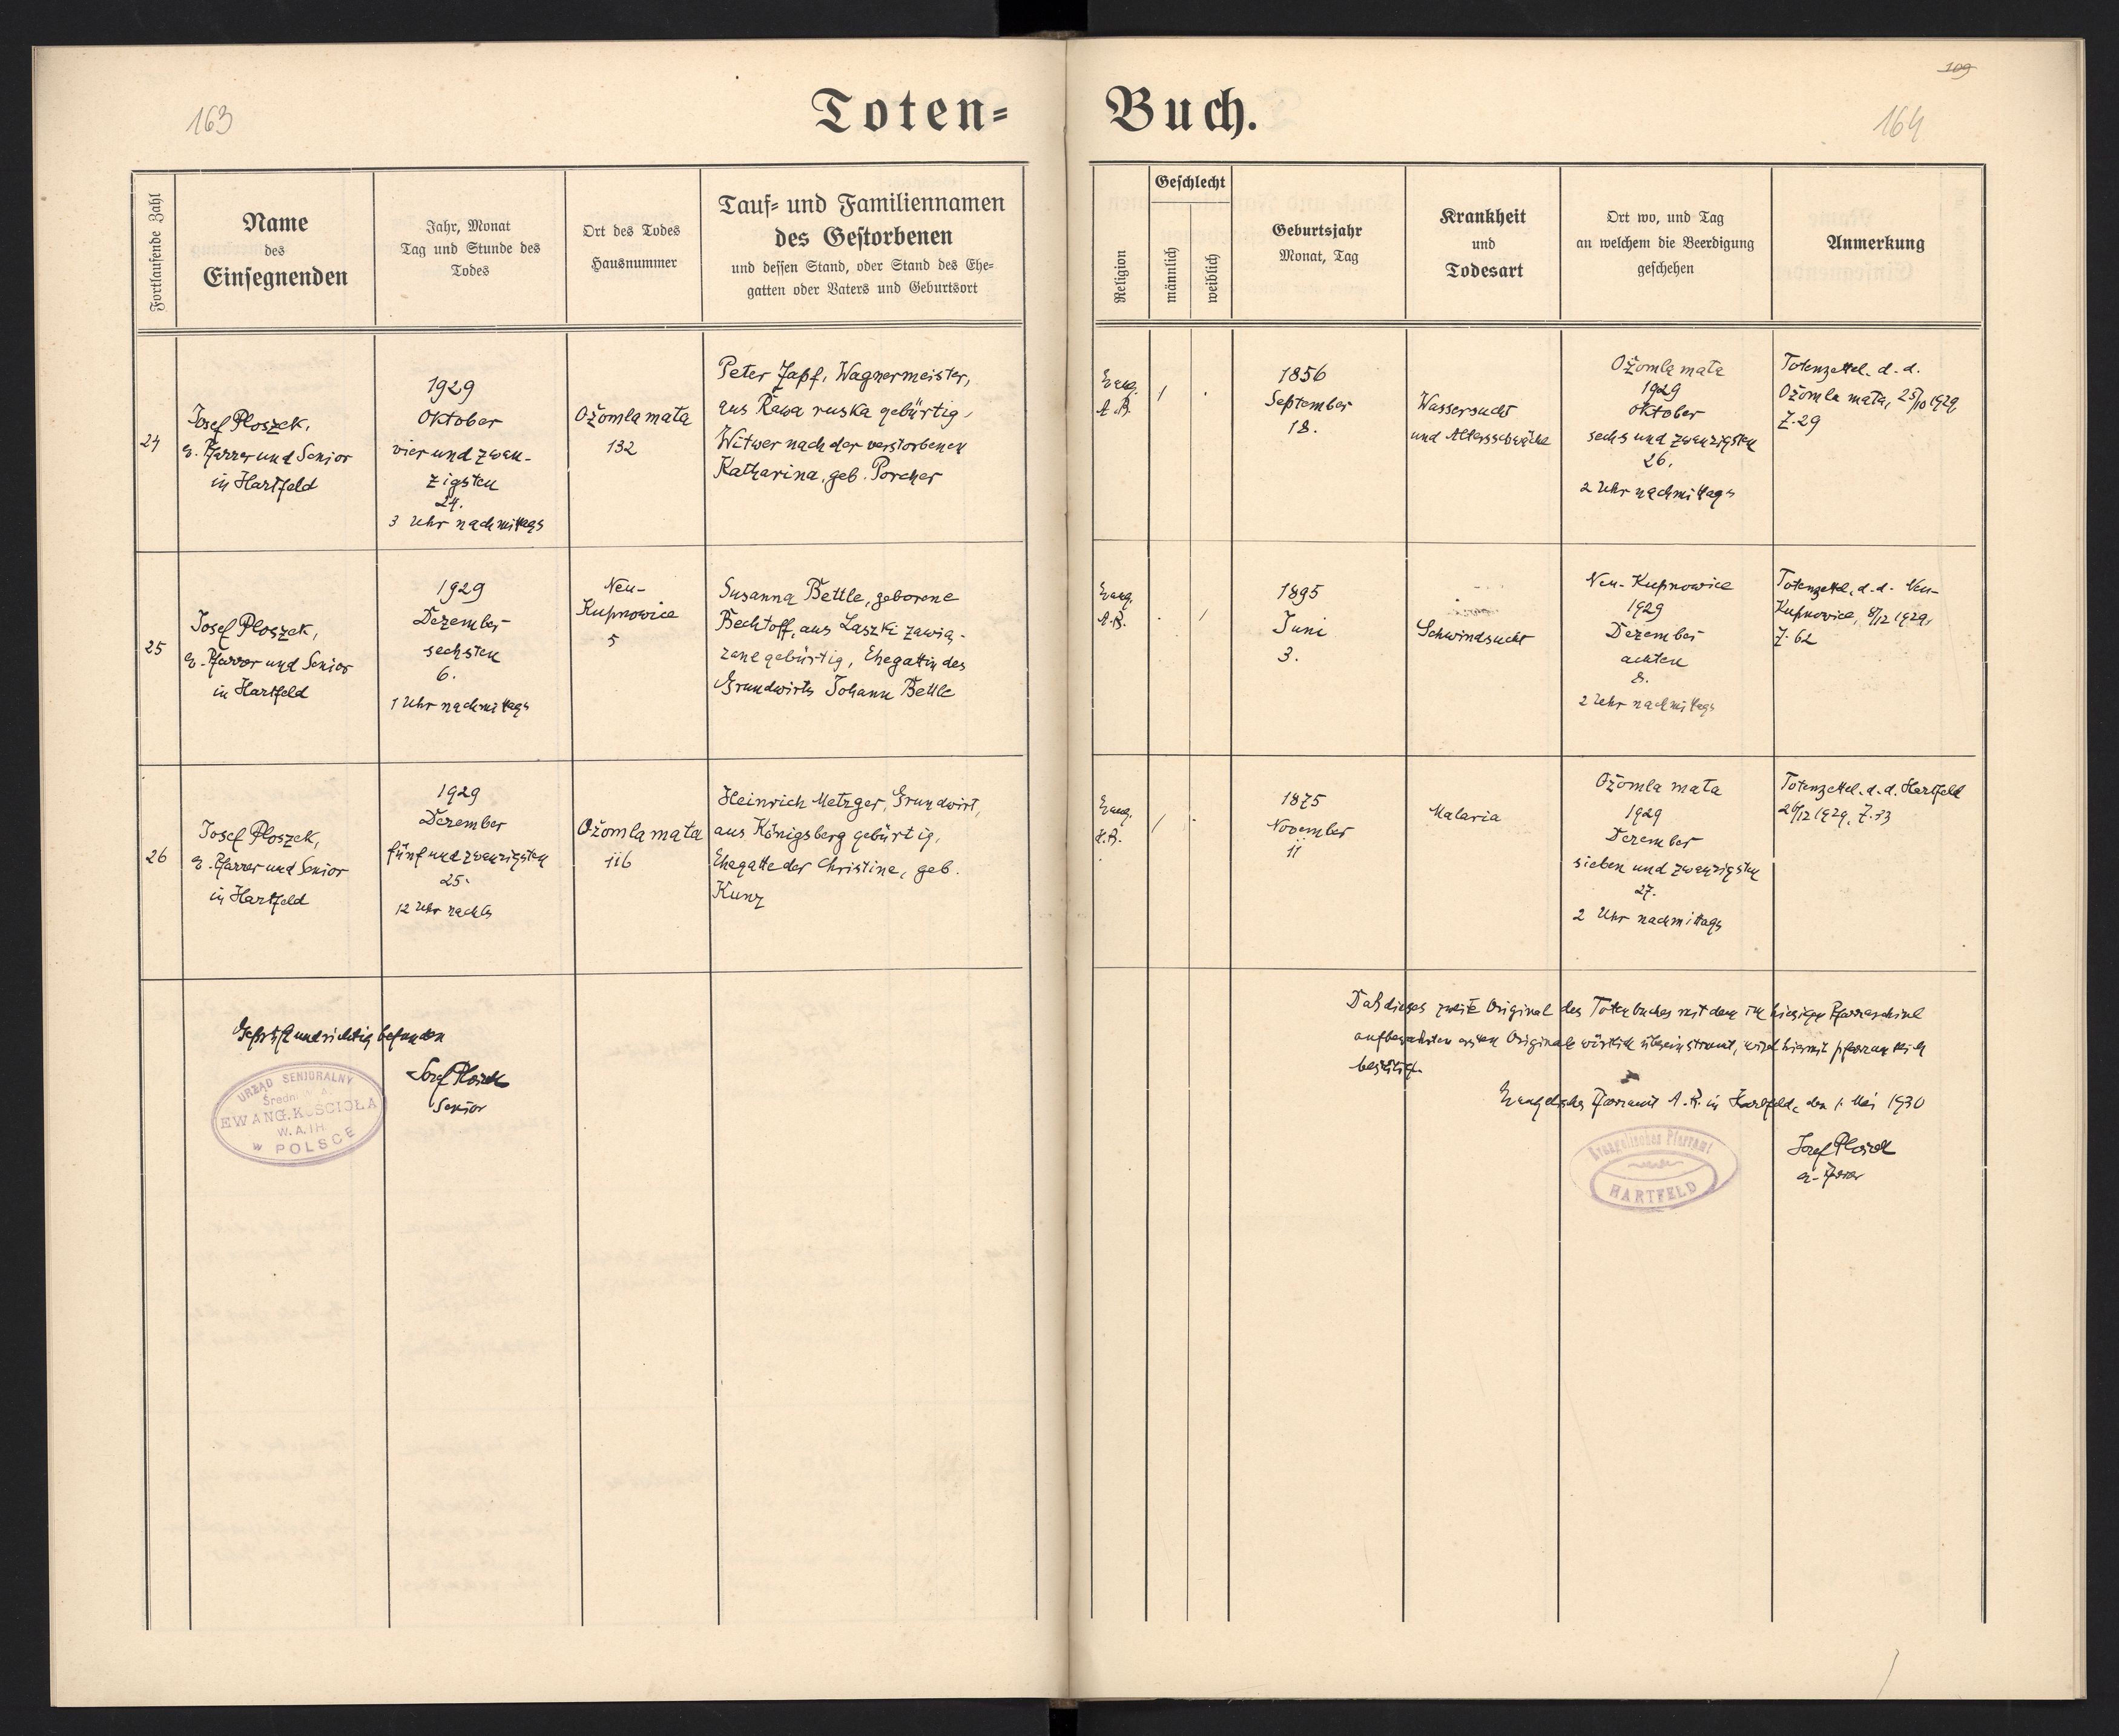 163
Toten=
Buch.
109
164
Fortlaufende Zahl
Name
des
Einsegnenden
Jahr, Monat
Tag und Stunde des
Todes
Ort des Todes
Hausnummer
Tauf= und Familiennamen
des Gestorbenen
und dessen Stand, oder Stand des Ehe=
gatten oder Vaters und Geburtsort
Religion
Geschlecht
männlich
weiblich
Geburtsjahr
Monat, Tag
Krankheit
und
Todesart
Ort wo, und Tag
an welchem die Beerdigung
geschehen
Anmerkung
24
Josef Ploszek,
e. Pfarrer und Senior
in Hartfeld
1929
Oktober
vier und zwan-
zigsten
24.
3 Uhr nachmittags
Ożomla mała
132
Peter Zapf, Wagnermeister,
aus Rawa ruska gebürtig,
Witwer nach der verstorbenen
Katharina, geb. Porcher
Evang.
A.B.
/
.
1856
September
18.
Wassersucht
und Altersschwäche
Ożomla mała
1929
Oktober
sechs und zwanzigsten
26.
2 Uhr nachmittags
Totenzettel. d. d.
Ożomla mała, 25/10 1929
Z. 29
25
Josef Ploszek,
e. Pfarrer und Senior
in Hartfeld
1929
Dezember
sechsten
6.
1 Uhr nachmittags
Neu-
Kupnowice
5
Susanna Bettle, geborene
Bechtoff, aus Laszki zawią-
zane gebürtig, Ehegattin des
Grundwirts Johann Bettle
Evang.
A.B.
.
/
1895
Juni
3.
Schwindsucht
Neu-Kupnowice
1929
Dezember
achten
8.
2 Uhr nachmittags
Totenzettel, d. d. Neu-
Kupnowice, 8/12 1929,
Z. 62
26
Josef Ploszek,
e. Pfarrer und Senior
in Hartfeld
1929
Dezember
fünf und zwanzigsten
25.
12 Uhr nachts
Ożomla mała
116
Heinrich Metzger, Grundwirt,
aus Königsberg gebürtig,
Ehegatte der Christine, geb.
Kunz
Evang.
A.B.
/
.
1875
November
11
Malaria
Ożomla mała
1929
Dezember
sieben und zwanzigsten
27.
2 Uhr nachmittags
Totenzettel. d. d. Hartfeld
26/12 1929, Z. 33
Geprüft und richtig befunden
Josef Ploszek
Senior
URZĄD SENJORALNY
Średni
EWANG. KOŚCIOŁA
W. A. I H.
w POLSCE
Daß dieses zweite Original des Totenbuches mit dem im hiesigen Pfarrarchive
aufbewahrten ersten Originale wörtlich übereinstimmt, wird hiermit pfarramtlich
bestätigt.
Evangelisches Pfarramt A. B. in Hartfeld, den 1. Mai 1930
Evangelisches Pfarramt
HARTFELD
Josef Ploszek
e. Pfarrer